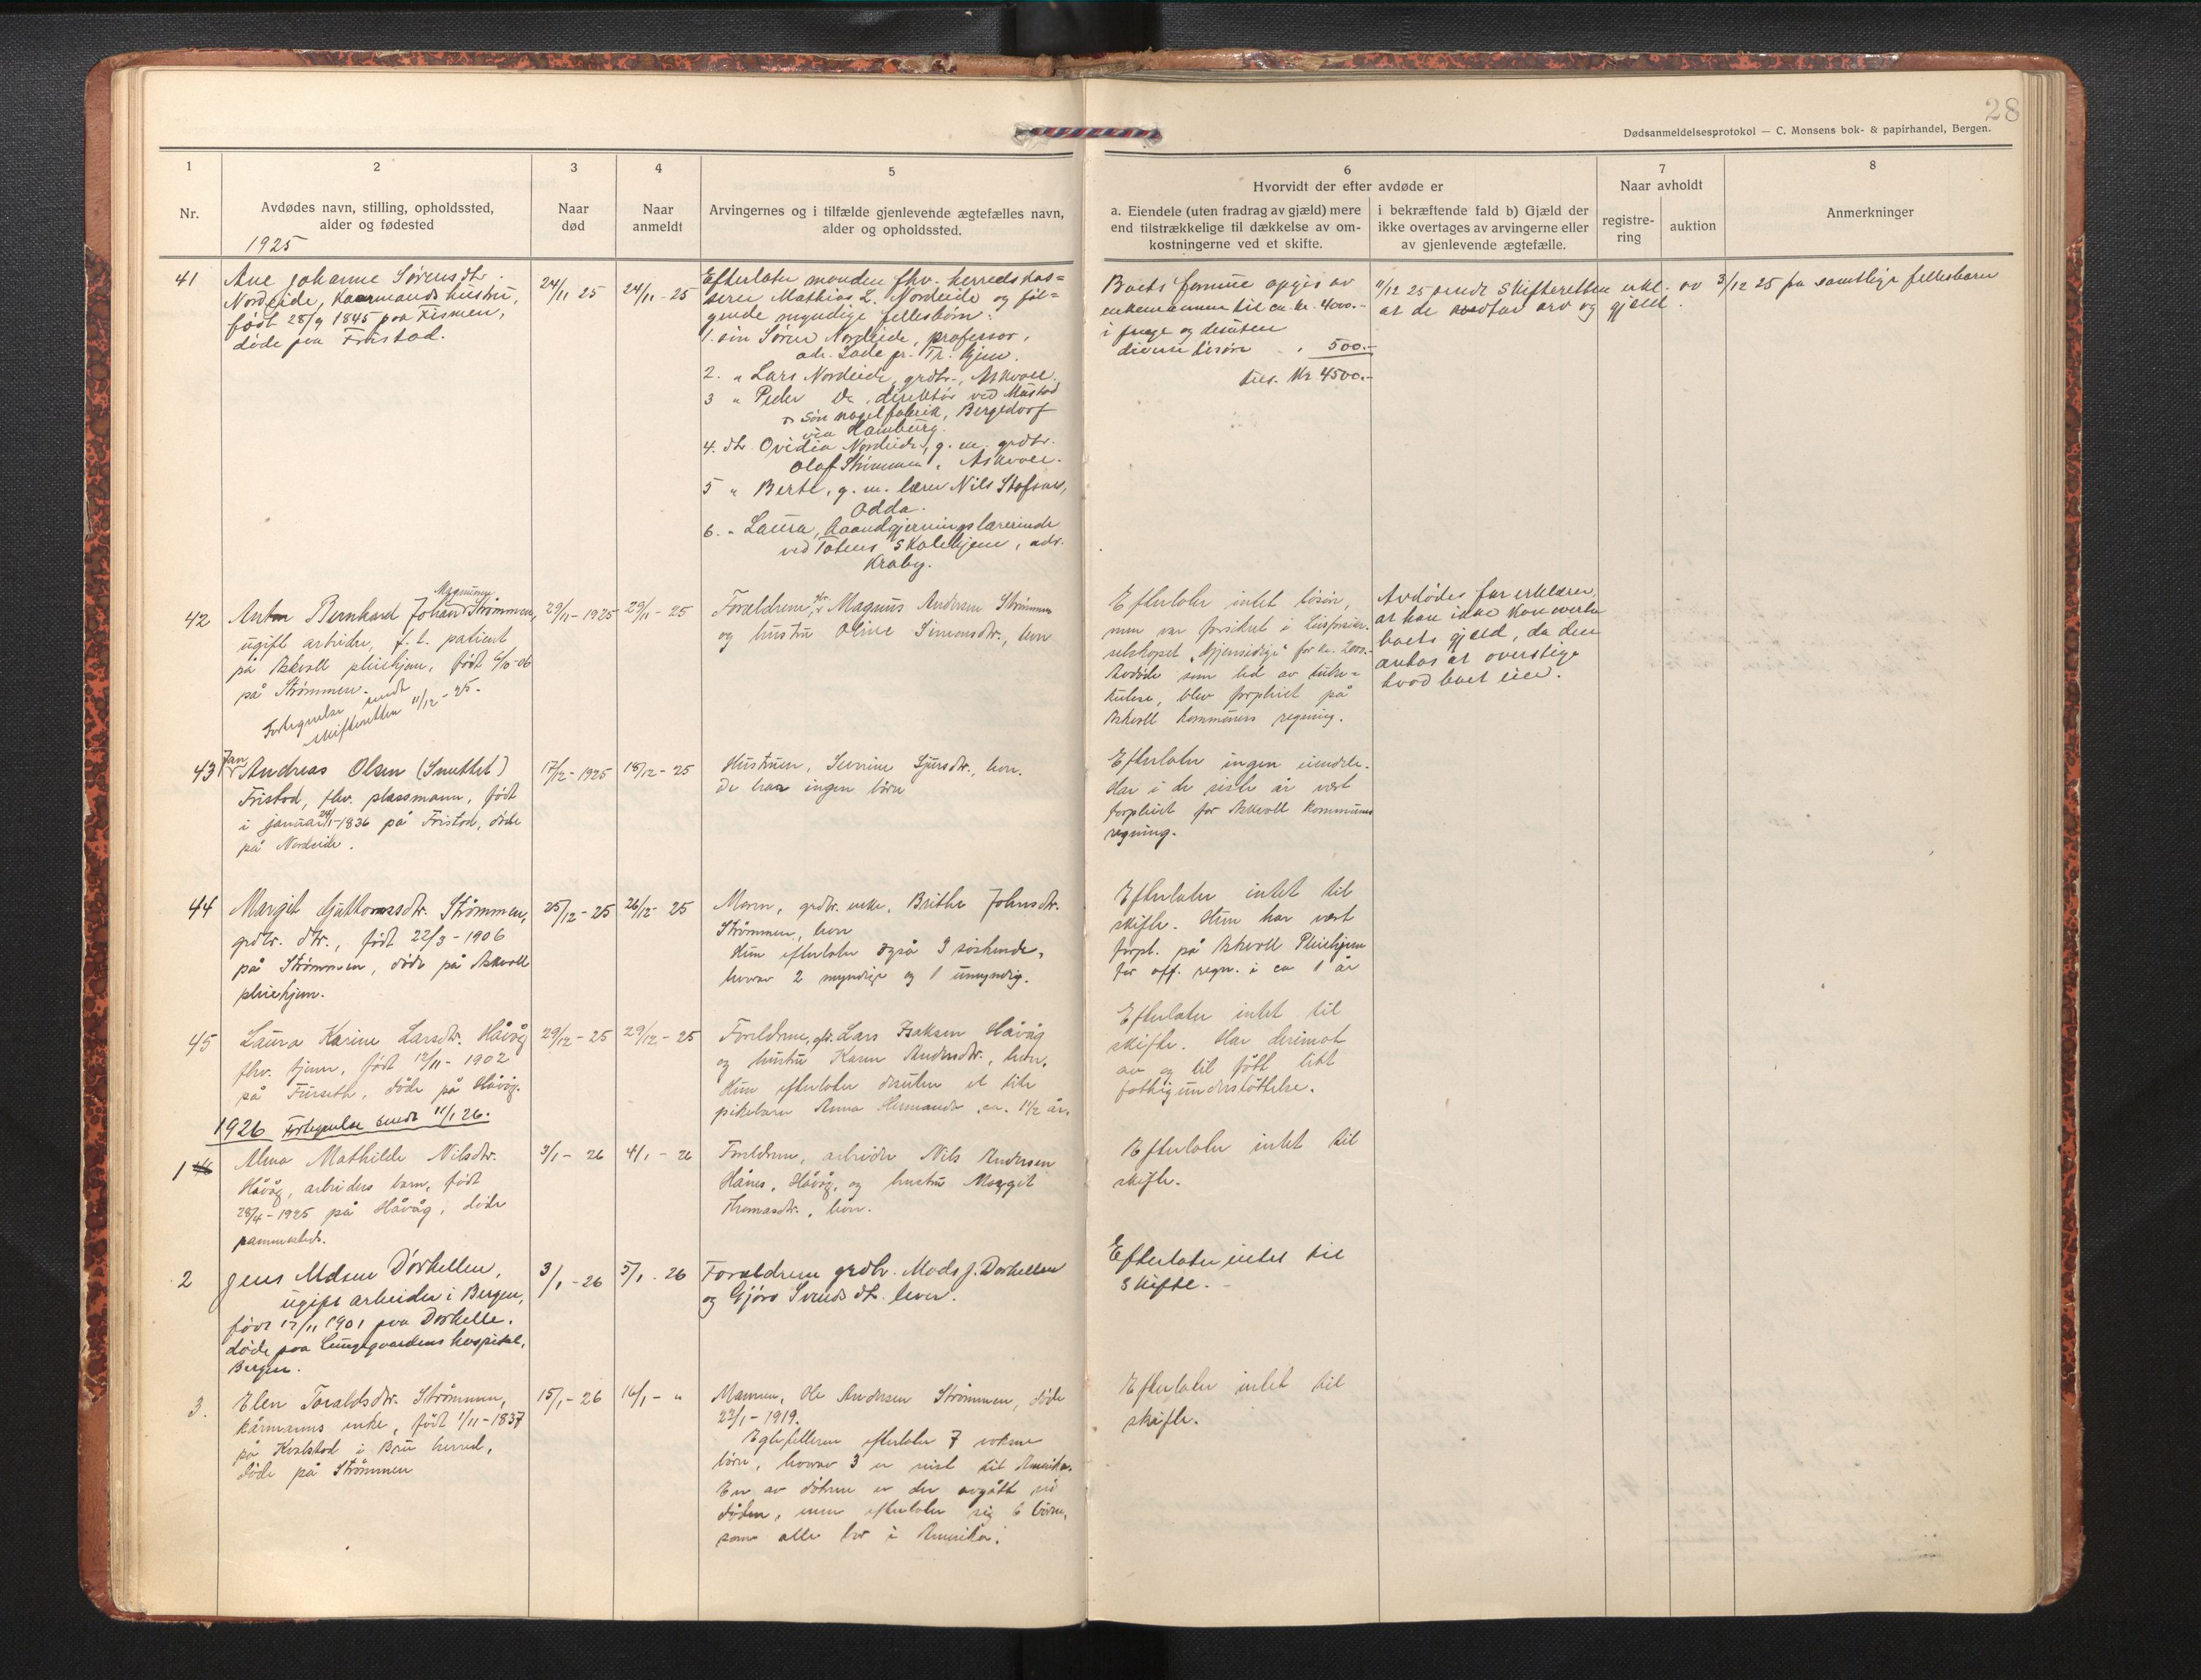 28
Dødsanmeldelsesprotokol — C. Monsens bok- & papirhandel, Bergen.
1
2
3
4
5
6
7
8
Nr.
Avdødes navn, stilling, opholdssted,
alder og fødested
Naar
død
Naar
anmeldt
Arvingernes og i tilfælde gjenlevende ægtefælles navn,
alder og opholdssted.
Hvorvidt der efter avdøde er
a. Eiendele (uten fradrag av gjæld) mere
end tilstrækkelige til dækkelse av om-
kostningerne ved et skifte.
i bekræftende fald b) Gjæld der
ikke overtages av arvingerne eller
av gjenlevende ægtefælle.
Naar avholdt
registre-
ring
auktion
Anmerkninger
1925
41
Ane Johanne Sørensdtr.
Nordeide, Kaarmands hustru,
født 28/9 1845 paa
døde paa Fristad.
24/11 25
24/11 - 25
Efterlater manden fhv. herredskas=
serer Mathias L. Nordeide og føl=
gende myndige fellesbørn:
1. søn Søren Nordeide, professor,
adr. Lade pr. Tr. hjem.
2. " Lars Nordeide, grdbr., Askvoll.
3 " Peder Do, direktør ved Mustad
& Søn nagelfabrik, Bergedorf
via Hamburg.
4. dtr. Ovidia Nordeide, g. m. grdbr.
Olaf Strømmen, Askvoll.
5 " Berte, g. m. lærer Nils
Odda.
6. " Laura, haandgjerningslærerinde
ved Totens Skolehjem, adr.
Kraby.
Boets formue opgis av
enkemannen til ca. kr. 4000.-
i penge og desuten
diverse løsøre " 500.-
tils. Kr 4500.-
11/12 25 sendt Skifteretten erkl. av 3/12 25 fra samtlige fellesbarn
at de vedtar arv og gjæld.
42
Magnussen
Anton Bernhard Johan Strømmen,
ugift arbeider, f. t. patient
på Askvoll pleiehjem, født 6/10-06
på Strømmen.
Fortegnelse sendt
skifteretten 11/12 - 25.
29/11 - 1925
29/11 - 25
Foreldrene, gbr. Magnus Andersen Strømmen
og hustru Oline Simonsdtr., lever
Efterlater intet løsøre,
men var forsikret i livsforsikr.
selskapet "Gjensidige" for kr. 2000.-
Avdøde som led av tuber=
kulose, blev forpleiet på
Askvoll kommunes regning.
Avdødes far erklærer,
at han ikke kan overta
boets gjæld, da den
antas at overstige
hvad boet eier.
43
Jan
Andreas Olsen (Snuttet)
Fristad, fhv. plassmann, født
i januar 24/1-1836 på Fristad, døde
på Nordeide.
17/12 - 1925
18/12 - 25
Hustruen, Severine Sjursdtr., lever.
De har ingen børn
Efterlater ingen eiendele.
Har i de siste år vært
forpleiet for Askvoll kommunes
regning.
44
Margit Guttormsdtr. Strømmen,
grdbr. dtr., født 22/3 - 1906
på Strømmen, døde på Askvoll
pleiehjem.
25/12 - 25
26/12 - 25
Moren, grdbr. enke, Brithe Johnsdtr.
Strømmen, lever
Hun efterlater også 3 søskende,
hvorav 2 myndige og 1 umyndig.
Efterlater intet til
skifte. Hun har vært
forpl. på Askvoll Pleiehjem
for off. regn. i ca 1 år
45
Laura Karine Larsdtr. Håvåg
fhv. tjener, født 12/11 - 1902
på Furseth, døde på Håvåg.
29/12 - 25
29/12 - 25
Foreldrene, gbr. Lars Isaksen Håvåg
og hustru Karen Andersdtr., lever.
Hun efterlater desuten et lite
pikebarn Anna Hermande, ca. 1 1/2 år.
Efterlater intet til
skifte. Har derimot
av og til fått litt
fattigunderstøttelse.
1926 Fortegnelse sendt 11/1 26.
1 46
Alma Mathilde Nilsdtr.
Håvåg, arbeiders barn, født
28/4 - 1925 på Håvåg, døde
sammesteds.
3/1 - 26
4/1 - 26
Foreldrene, arbeider Nils Andersen
Hånes, Håvåg, og hustru Margit
Thomasdtr., lever.
Efterlater intet til
skifte.
2
Jens Madsen Dørhellen,
ugift arbeider i Bergen,
født 17/11 1901 paa Dørhelle.
døde paa Lungegaardens hospital,
Bergen.
3/1 - 26
5/1 - 26
Foreldrene grdbr. Mads J. Dørhellen
og Gjøro Svendsdtr. lever.
Efterlater intet til
skifte.
3.
Elen Toraldsdtr. Strømmen,
kårmanns enke, født 1/11 - 1837
på Kvalstad i Bru herred,
døde på Strømmen
15/1 - 26
16/1 - "
Mannen, Ole Andersen Strømmen, døde
22/1 - 1919.
Egtefellerne efterlater 7 voksne
børn, hvorav 3 er reist til Amerika.
En av døtrene er der avgått ved
døden, men efterlater sig 6 børn,
som alle bor i Amerika.
Efterlater intet til
skifte.